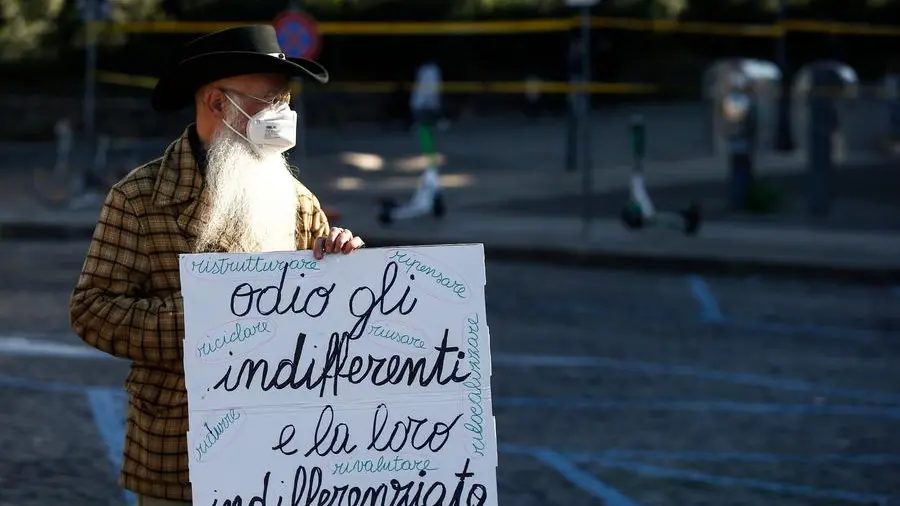 ristrutturare
ripensare
odio gli
riciclare
riusare
indifferenti
rilocalizzare
ridurre
e la loro
rivalutare
indifferenziata